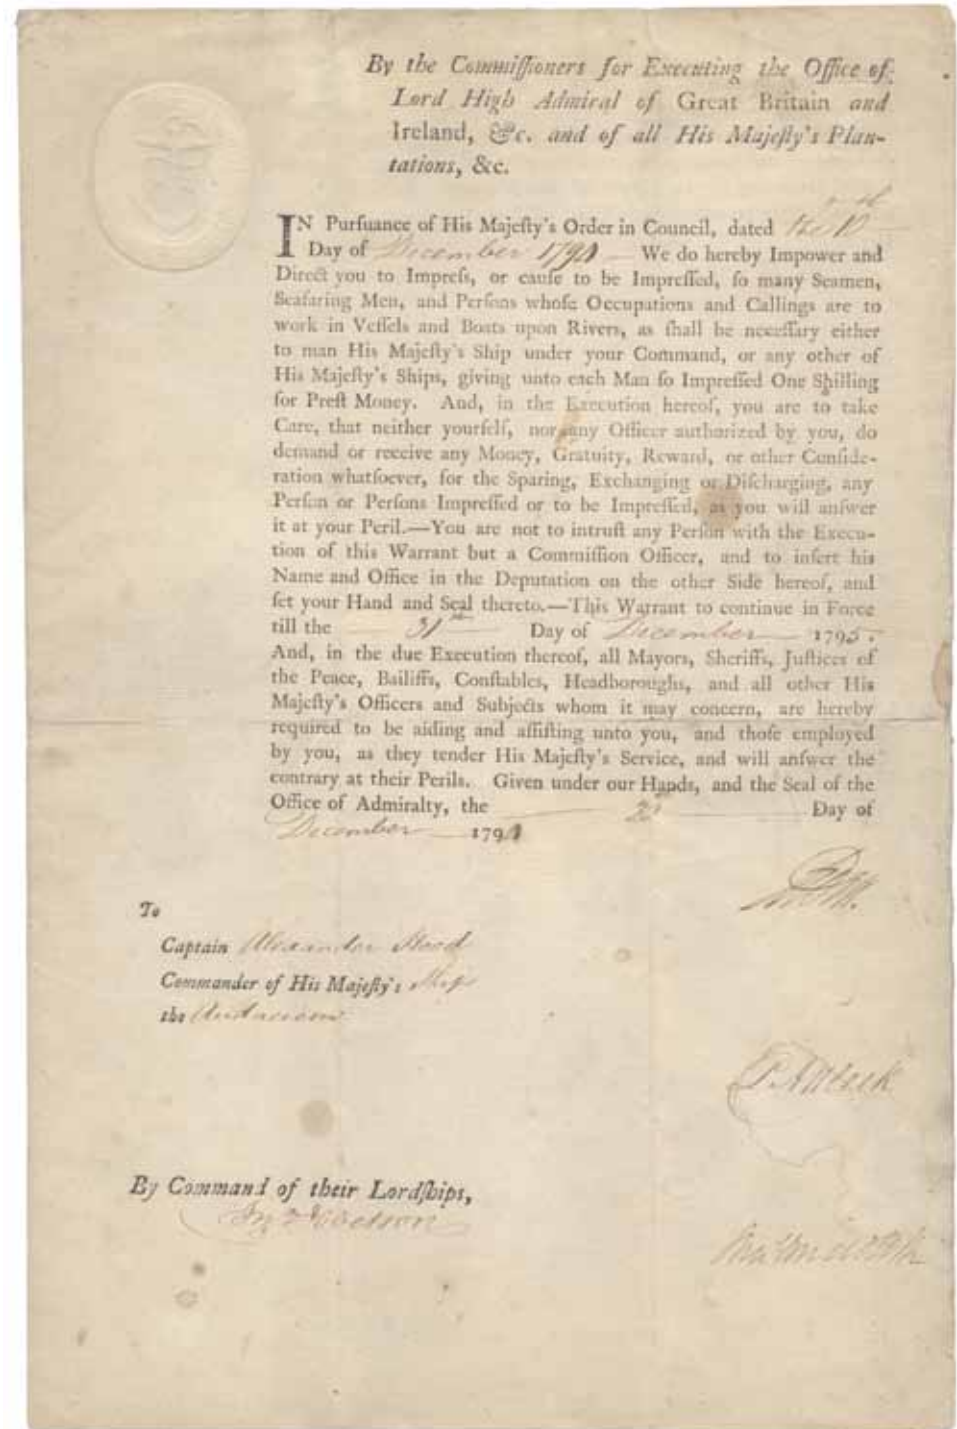 By the Commiſſioners for Executing the Office of
Lord High Admiral of Great Britain and
Ireland, &c. and of all His Majeſty's Plan-
tations, &c.
IN Purſuance of His Majeſty's Order in Council, dated the
Day of December 179 We do hereby Impower and
Direct you to Impreſs, or cauſe to be Impreſſed, ſo many Seamen,
Seafaring Men, and Perſons whoſe Occupations and Callings are to
work in Veſſels and Boats upon Rivers, as ſhall be neceſſary either
to man His Majeſty's Ship under your Command, or any other of
His Majeſty's Ships, giving unto each Man ſo Impreſſed One Shilling
for Preſt Money. And, in the Execution hereof, you are to take
Care, that neither yourſelf, nor any Officer authorized by you, do
demand or receive any Money, Gratuity, Reward, or other Conſide-
ration whatſoever, for the Sparing, Exchanging or Diſcharging, any
Perſon or Perſons Impreſſed or to be Impreſſed, as you will anſwer
it at your Peril.—You are not to intruſt any Perſon with the Execu-
tion of this Warrant but a Commiſſion Officer, and to inſert his
Name and Office in the Deputation on the other Side hereof, and
ſet your Hand and Seal thereto.—This Warrant to continue in Force
till the 31st Day of December 1795.
And, in the due Execution thereof, all Mayors, Sheriffs, Juſtices of
the Peace, Bailiffs, Conſtables, Headboroughs, and all other His
Majeſty's Officers and Subjects whom it may concern, are hereby
required to be aiding and aſſiſting unto you, and thoſe employed
by you, as they tender His Majeſty's Service, and will anſwer the
contrary at their Perils. Given under our Hands, and the Seal of the
Office of Admiralty, the Day of
December 179
To
Captain Alexander Hood
Commander of His Majeſty's Ship
the Audacious
By Command of their Lordſhips,